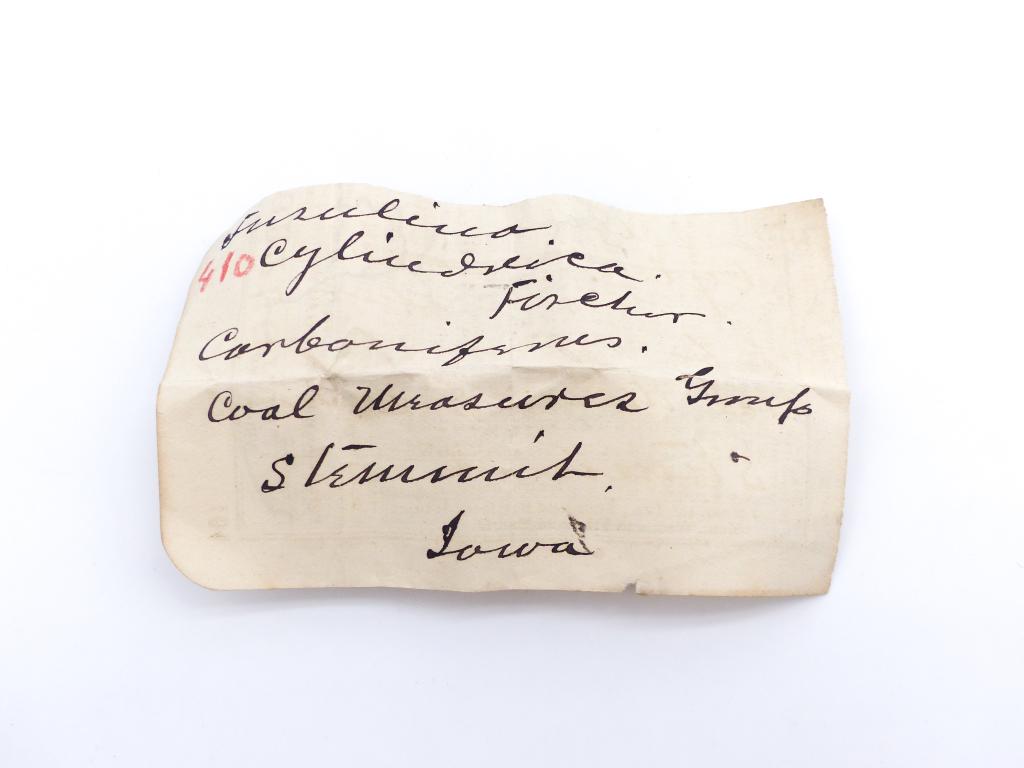 Fusulina
410 Cylindrica.
Fischer.
Carboniferus.
Coal Measures Group
Stemmit,
Iowa